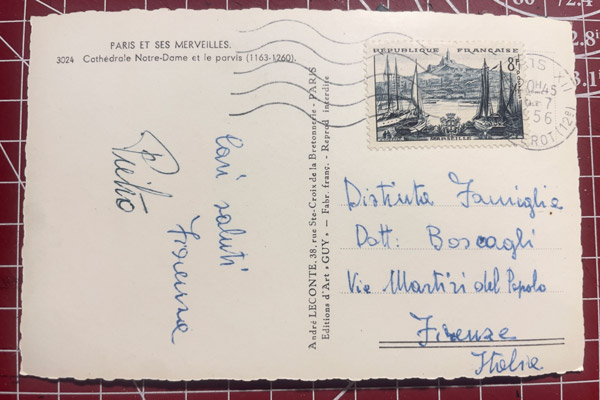 PARIS ET SES MERVEILLES.
3024 Cathédrale Notre-Dame et le parvis (1163-1260).
Cari saluti
Fiorenza
André LECONTE, 38, rue Ste-Croix de la Bretonnerie - PARIS
Editions d'Art "GUY" - Fabr. franç. - Reprod interdite
REPUBLIQUE FRANÇAISE
8F
MARSEILLE
Distinta Famiglia
Dott: Boscagli
Via Martiri del Popolo
Firenze
Italia